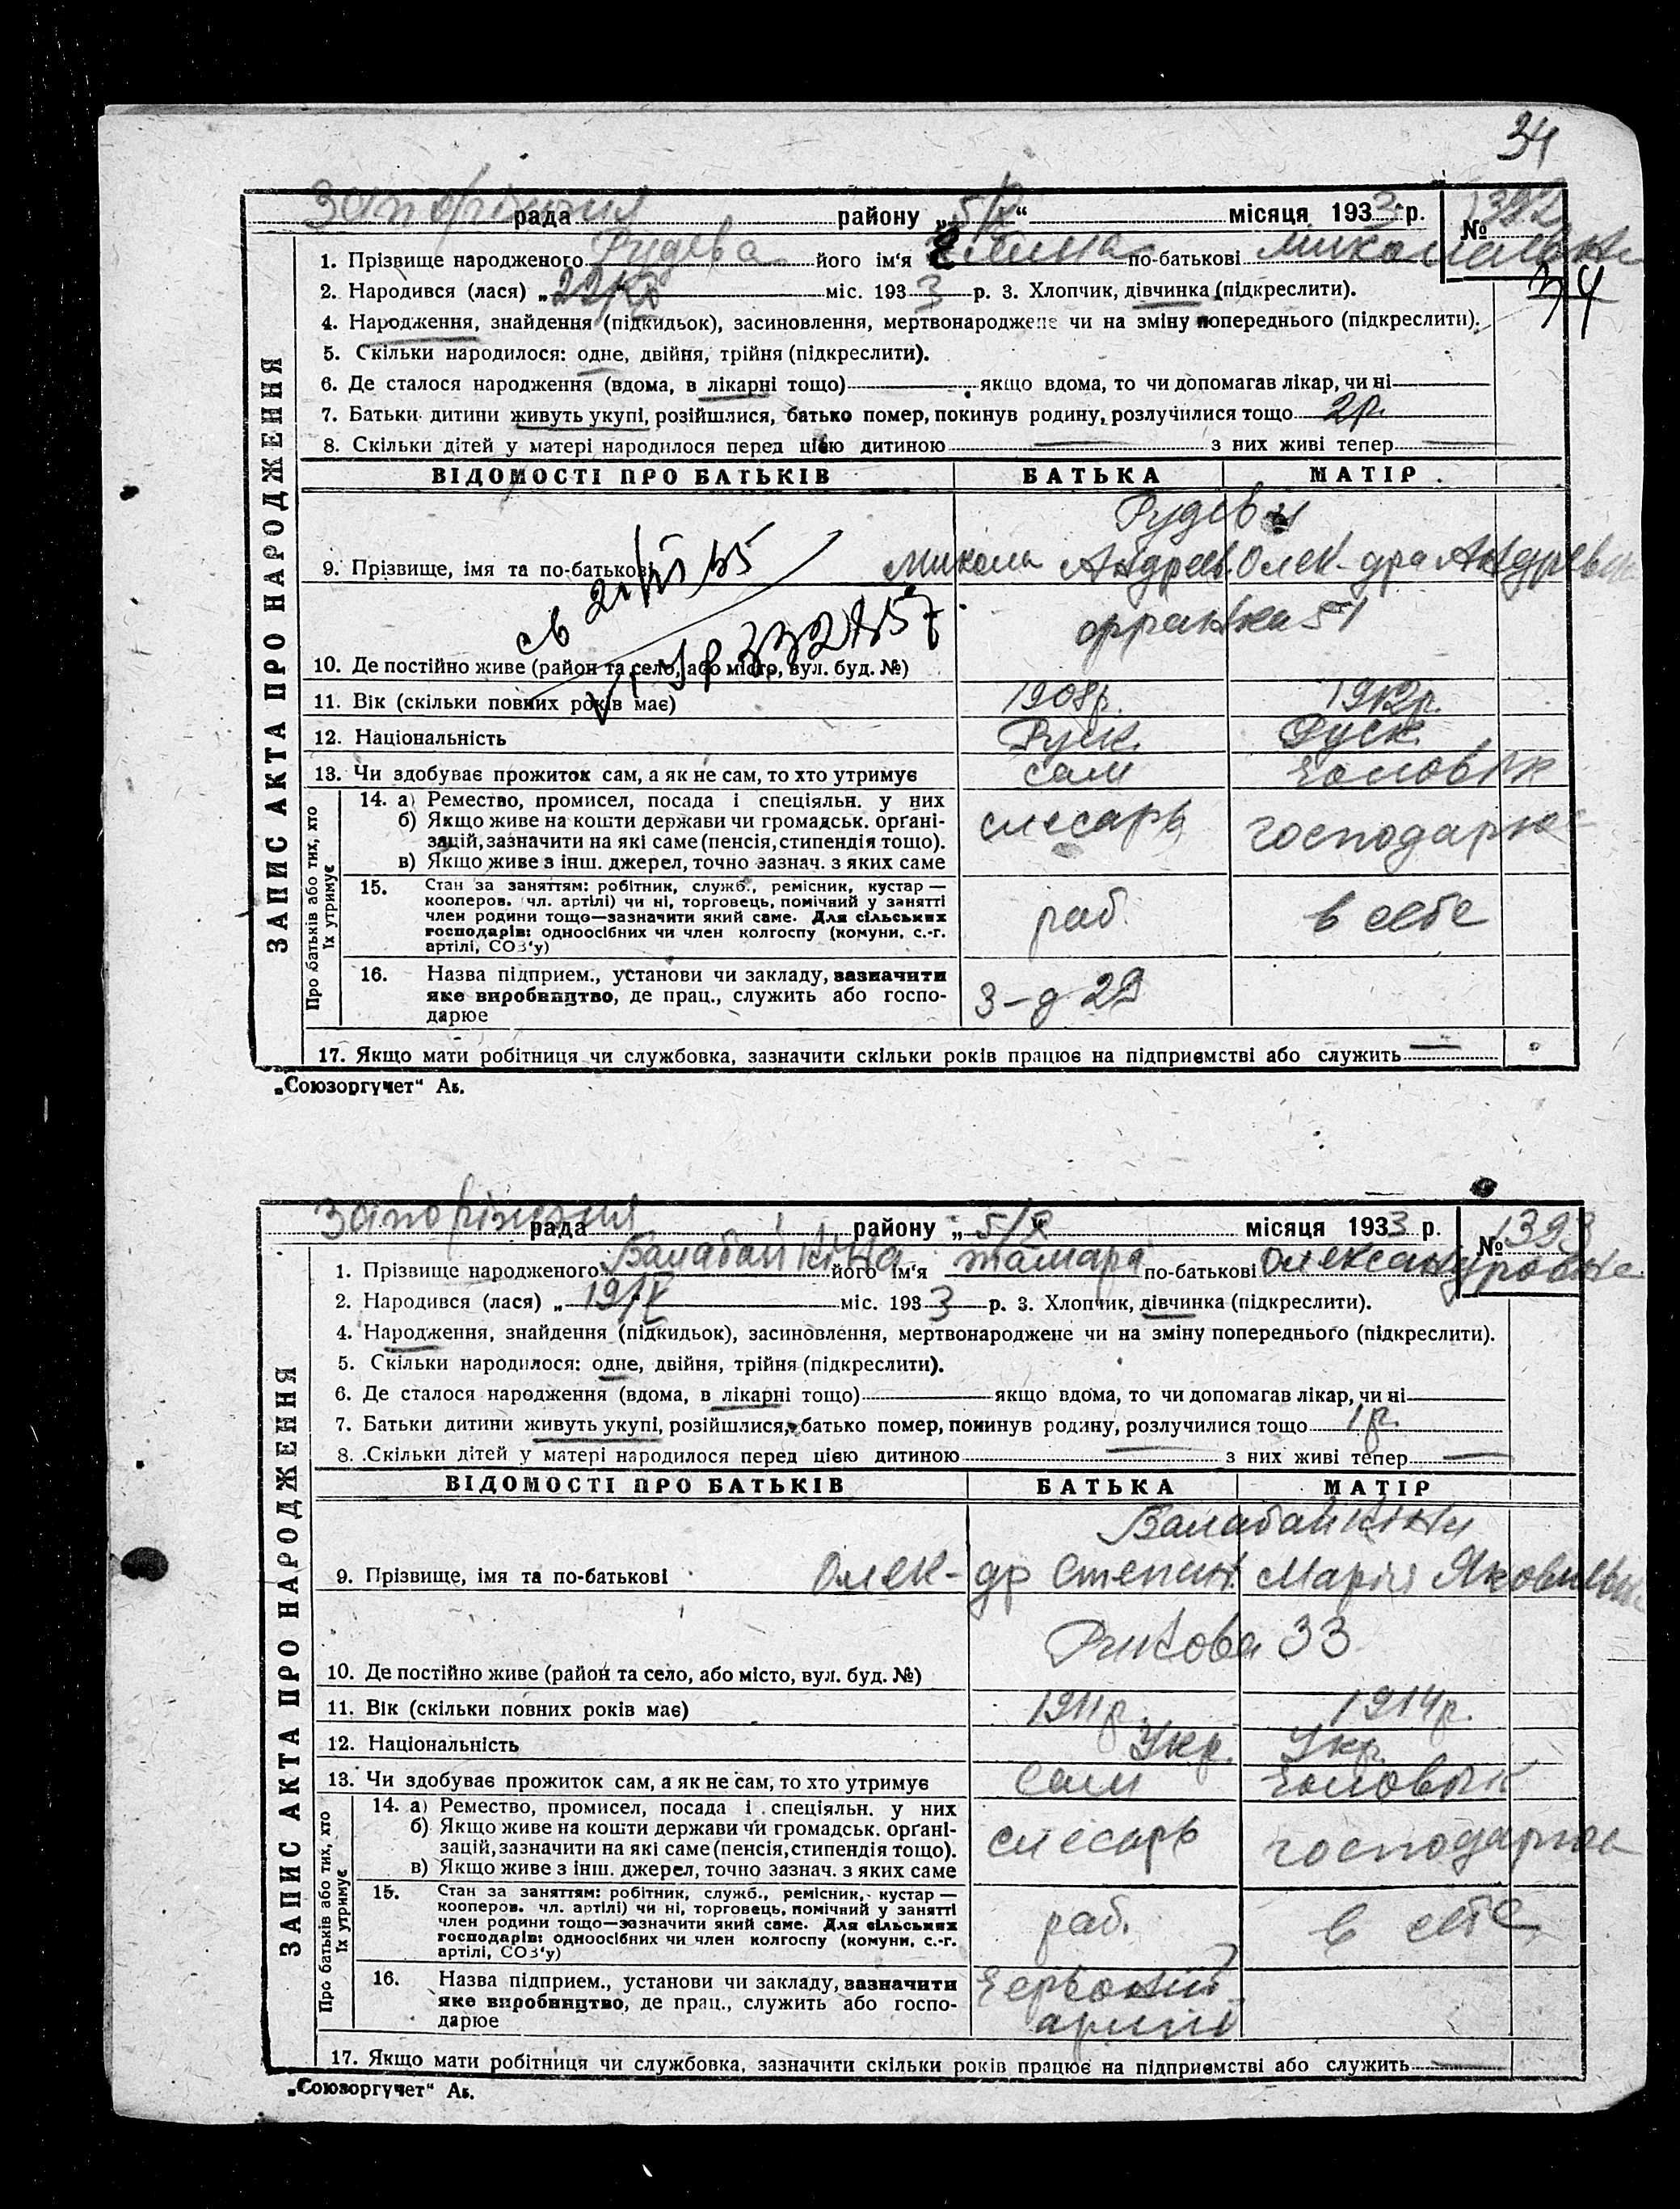 34
Запоріжжя рада району „5/X“ місяця 1933 р. № 1392
1. Прізвище народженого Рудева його ім'я Еліна по-батькові Миколаївна
2. Народився (лася) „22/ міс. 1933 р. 3. Хлопчик, дівчинка (підкреслити).
34
4. Народження, знайдення (підкидьок), засиновлення, мертвонароджене чи на зміну попереднього (підкреслити).
5. Скільки народилося: одне, двійня, трійня (підкреслити).
6. Де сталося народження (вдома, в лікарні тощо) якщо вдома, то чи допомагав лікар, чи ні
7. Батьки дитини живуть укупі, розійшлися, батько помер, покинув родину, розлучилися тощо 2р.
8. Скільки дітей у матері народилося перед цією дитиною — з них живі тепер —
ЗАПИС АКТА ПРО НАРОДЖЕННЯ
ВІДОМОСТІ ПРО БАТЬКІВ БАТЬКА МАТІР
Рудеви
9. Прізвище, імя та по-батькові Микола Андреев. Олек-дра Андревн
св
51
10. Де постійно живе (район та село, або місто, вул. буд. №)
11. Вік (скільки повних років має) 1908р. 1912р.
12. Національність Руск. Руск.
13. Чи здобуває прожиток сам, а як не сам, то хто утримує сам чоловік
Про батьків або тих, хто їх утримує
14. а) Ремество, промисел, посада і спеціяльн. у них
б) Якщо живе на кошти держави чи громадськ. орґані-
зацій, зазначити на які саме (пенсія, стипендія тощо).
в) Якщо живе з інш. джерел, точно зазнач. з яких саме
слесарь господарює
15. Стан за заняттям: робітник, служб., ремісник, кустар —
кооперов. чл. артілі) чи ні, торговець, помічний у занятті
член родини тощо—зазначити який саме. Для сільських
господарів: одноосібних чи член колгоспу (комуни, с.-г.
артілі, СОЗ'у)
раб. в себе
16. Назва підприєм., установи чи закладу, зазначити
яке виробництво, де прац., служить або госпо-
дарює
З-д 29
17. Якщо мати робітниця чи службовка, зазначити скільки років працює на підприємстві або служить —
„Союзоргучет“ Ав.
Запоріжжя рада району „5/X“ місяця 1933 р. № 1393
1. Прізвище народженого Балабайкіна його ім'я Тамара по-батькові Олександровна
2. Народився (лася) „19/ міс. 1933 р. 3. Хлопчик, дівчинка (підкреслити).
4. Народження, знайдення (підкидьок), засиновлення, мертвонароджене чи на зміну попереднього (підкреслити).
5. Скільки народилося: одне, двійня, трійня (підкреслити).
6. Де сталося народження (вдома, в лікарні тощо) якщо вдома, то чи допомагав лікар, чи ні
7. Батьки дитини живуть укупі, розійшлися, батько помер, покинув родину, розлучилися тощо 1р.
8. Скільки дітей у матері народилося перед цією дитиною — з них живі тепер —
ЗАПИС АКТА ПРО НАРОДЖЕННЯ
ВІДОМОСТІ ПРО БАТЬКІВ БАТЬКА МАТІР
Балабайкіни
9. Прізвище, імя та по-батькові Олек-др Степан Марія Яковлівн
Рикова 33
10. Де постійно живе (район та село, або місто, вул. буд. №)
11. Вік (скільки повних років має) 1911р. 1914р.
12. Національність Укр. Укр.
13. Чи здобуває прожиток сам, а як не сам, то хто утримує сам чоловік
Про батьків або тих, хто їх утримує
14. а) Ремество, промисел, посада і спеціяльн. у них
б) Якщо живе на кошти держави чи громадськ. орґані-
зацій, зазначити на які саме (пенсія, стипендія тощо).
в) Якщо живе з інш. джерел, точно зазнач. з яких саме
слесарь господарює
15. Стан за заняттям: робітник, служб., ремісник, кустар —
кооперов. чл. артілі) чи ні, торговець, помічний у занятті
член родини тощо—зазначити який саме. Для сільських
господарів: одноосібних чи член колгоспу (комуни, с.-г.
артілі, СОЗ'у)
раб. в себе
16. Назва підприєм., установи чи закладу, зазначити
яке виробництво, де прац., служить або госпо-
дарює
Червоний
17. Якщо мати робітниця чи службовка, зазначити скільки років працює на підприємстві або служить —
„Союзоргучет“ Ав.